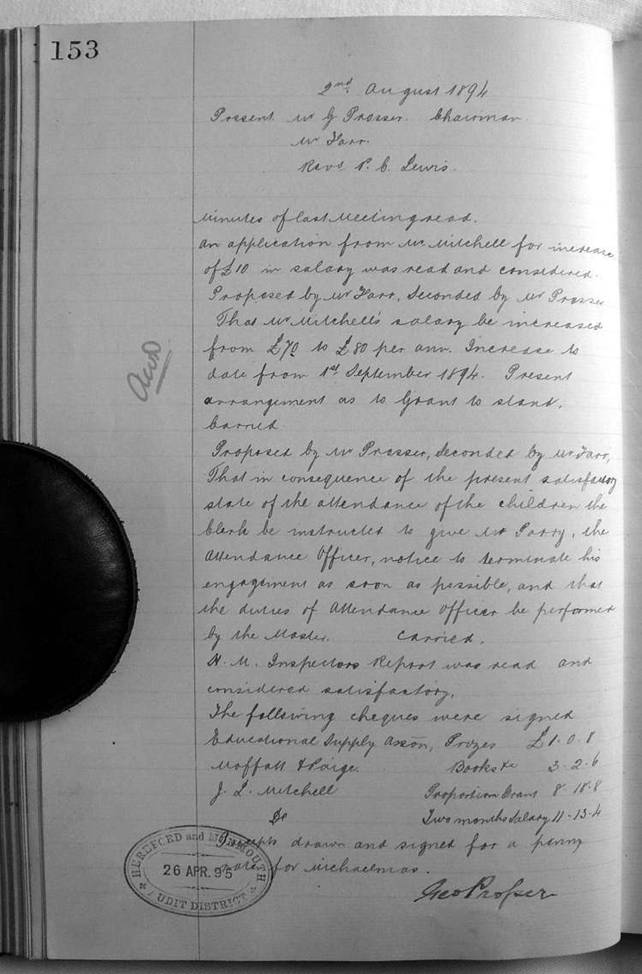 153
2nd August 1894
Present Mr G Prosser Chairman
Mr Farr
Revd P. C. Lewis
Minutes of last Meeting read.
An application from Mr Mitchell for increase
of £10 in salary was read and considered.
Proposed by Mr Farr, Seconded by Mr Prosser
That Mr Mitchell's salary be increased
from £70 to £80 per ann. Increase to
date from 1st September 1894. Present
arrangement as to Grant to stand.
Carried
Proposed by Mr Prosser, seconded by Mr Farr,
That in consequence of the present satisfactory
state of the attendance of the children the
Clerk be instructed to give Mr Parry, the
Attendance Officer, notice to terminate his
engagement as soon as possible, and that
the duties of Attendance Officer be performed
by the Master. Carried.
H. M. Inspectors Report was read and
considered satisfactory.
The following cheques were signed
Educational Supply Assōn, Prizes £1-0-8
Moffatt & Paige. Books &c 3-2-6
J. L. Mitchell Proportion Grant 8-18-8
Do Two months Salary 11-13-4
Precepts drawn and signed for a penny
rate for Michaelmas.
Geo Prosser
HEREFORD and MONMOUTH
26 APR. 95
AUDIT DISTRICT